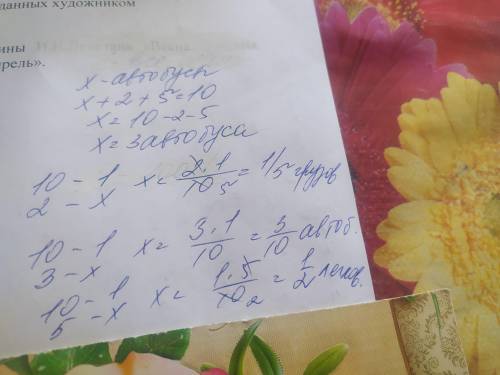 данных художником
ины
рель».
x - автобусы
x + 2 + 5 = 10
x = 10 - 2 - 5
x = 3 автобуса
10 - 1
2 - x
x = 2·1/10 5 = 1/5 грузов
10 - 1
3 - x
x = 3·1/10 = 3/10 автоб.
10 - 1
5 - x
x = 1·5/10 2 = 1/2 легков.